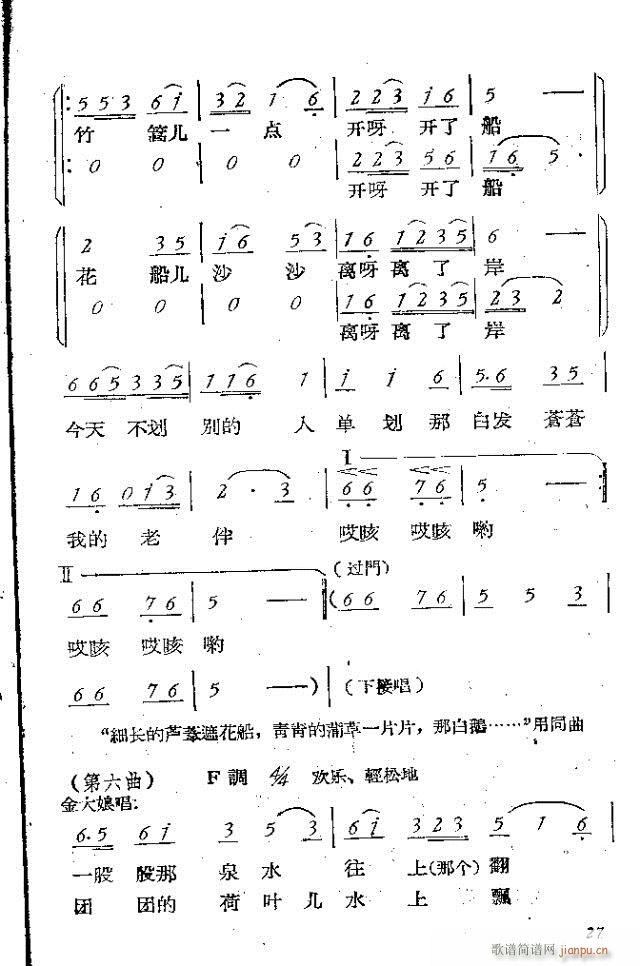 5 5 3 6 i | 3 2 1 6 | 2 2 3 i 6 | 5 —
竹 篙儿 一 点 开呀 开了 船
0 0 | 0 0 | 2 2 3 5 6 | 1 6 5
开呀 开了 船
2 3 5 | i 6 5 3 | 1 6 1 2 3 5 | 6 —
花 船儿 沙 沙 离呀 离 了 岸
0 0 | 0 0 | 1 6 1 2 3 5 | 2 3 2
离呀 离 了 岸
6 6 5 3 3 5 | 1 1 6 1 | i i 6 | 5·6 3 5
今天 不划 别的 人 单 划 那 白发 苍苍
I
1 6 0 i 3 | 2 · 3 | 6 6 7 6 | 5 —
我的 老 伴 哎咳 哎咳 哟
II (过門)
6 6 7 6 | 5 — (6 6 7 6 | 5 5 3
哎咳 哎咳 哟
6 6 7 6 | 5 —) | (下接唱)
“細长的芦葦遮花船，青青的蒲草一片片，那白鵝……”用同曲
(第六曲) F調 4/4 欢乐、輕松地
金大娘唱：
6·5 6 i 3 5 3 | 6 i 3 2 3 5 1 6
一股 股那 泉 水 往 上(那个) 翻
团 团的 荷 叶儿 水 上 飄
27
歌谱简谱网 jianpu.cn